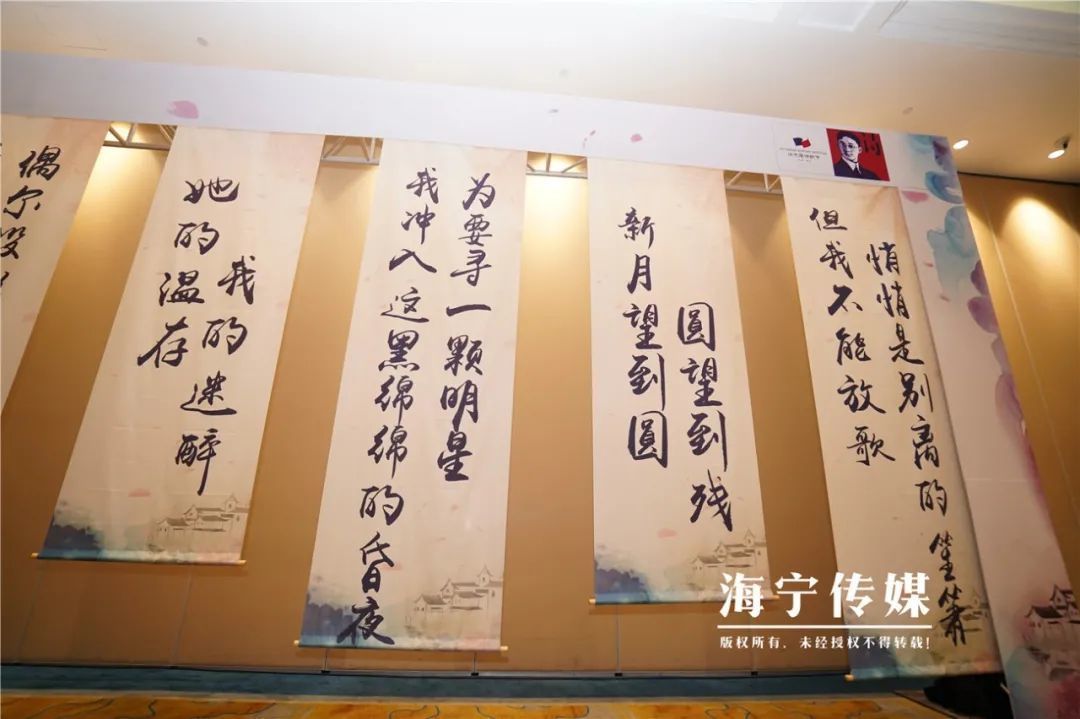 偶尔
她的温存
我的迷醉
我冲入这黑绵绵的昏夜
为要寻一颗明星
新月望到圆
圆望到残
但我不能放歌
悄悄是别离的笙箫
海宁传媒
版权所有，未经授权不得转载！